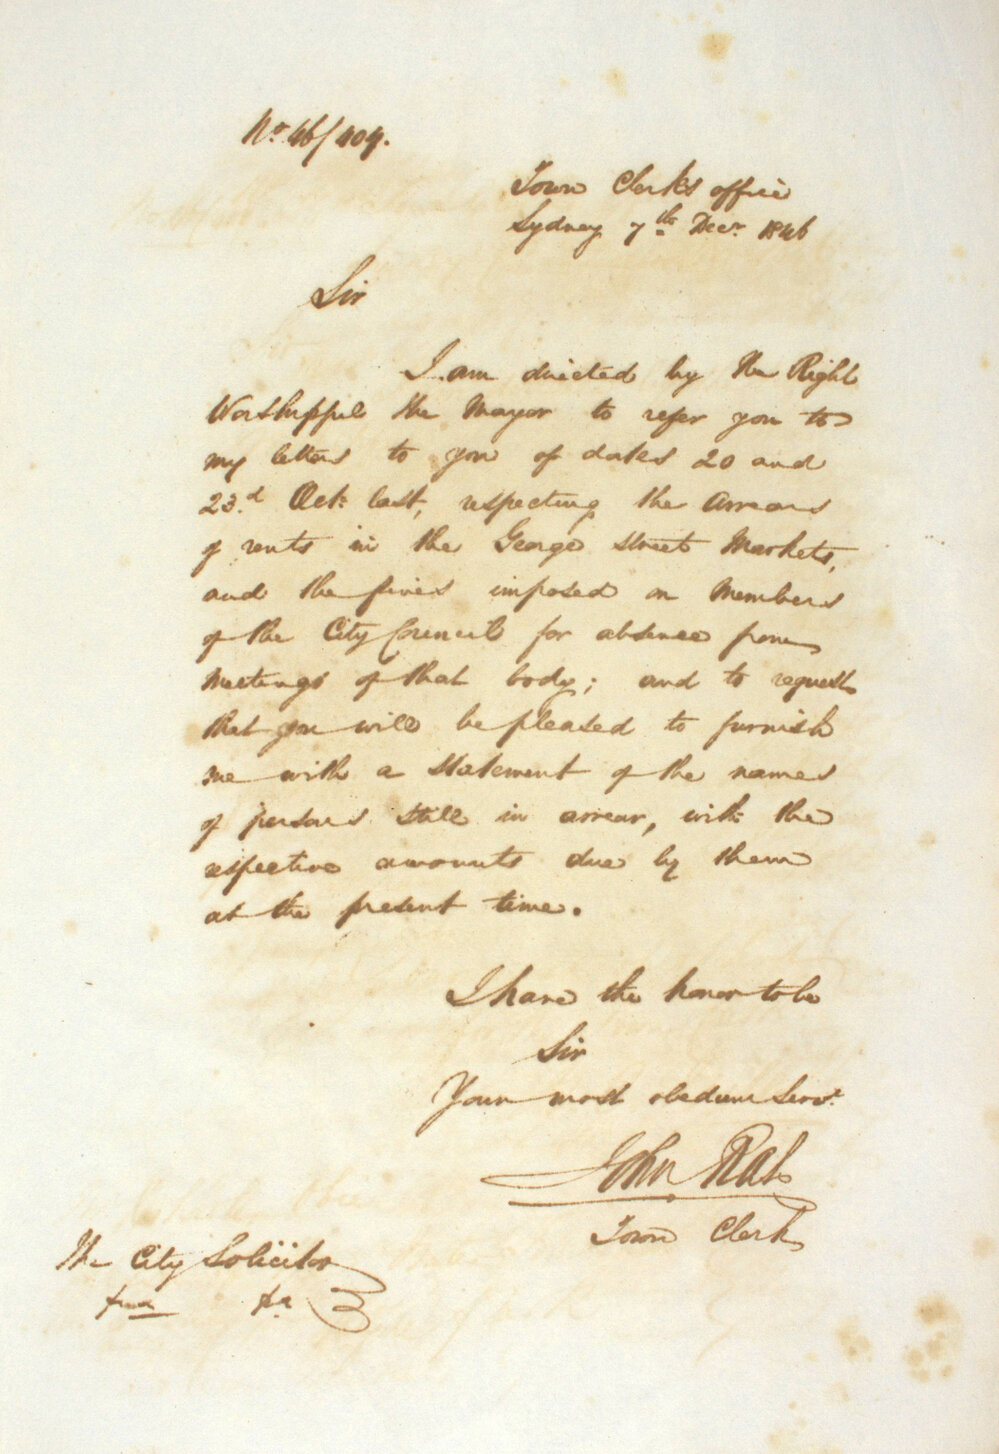 No 46/409.
Town Clerks office
Sydney 7th Decr 1846
Sir
I am directed by the Right
Worshipful the Mayor to refer you to
my letters to you of dates 20 and
23.d Oct: last, respecting the Arrears
of rents in the George Street Markets,
and the fines imposed on Members
of the City Council for absence from
Meetings of that body; and to request
that you will be pleased to furnish
me with a statement of the names
of persons still in arrear, with the
respective amounts due by them
at the present time.
I have the honor to be
Sir
Your most obedient Servt
John Rae
Town Clerk
The City Solicitor